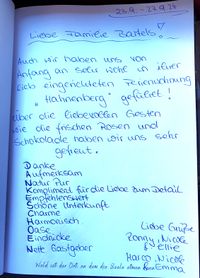 22.9. - 27.9.24
Liebe Familie Bartels!
Auch wir haben uns von
Anfang an sehr wohl in ihrer
lieb eingerichteten Ferienwohnung
"Hahnenberg" gefühlt!
Über die liebevollen Gesten
wie die frischen Rosen und
Schokolade haben wir uns sehr
gefreut.
Danke
Aufmerksam
Natur Pur
Kompliment für die Liebe zum Detail
Empfehlenswert
Schöne Unterkunft
Charme
Harmonisch
Oase
Eindrücke
Nette Gastgeber
Liebe Grüße
Nicole
Nicole
& Emma
Wald ist der Ort an dem die Seele atmen kann